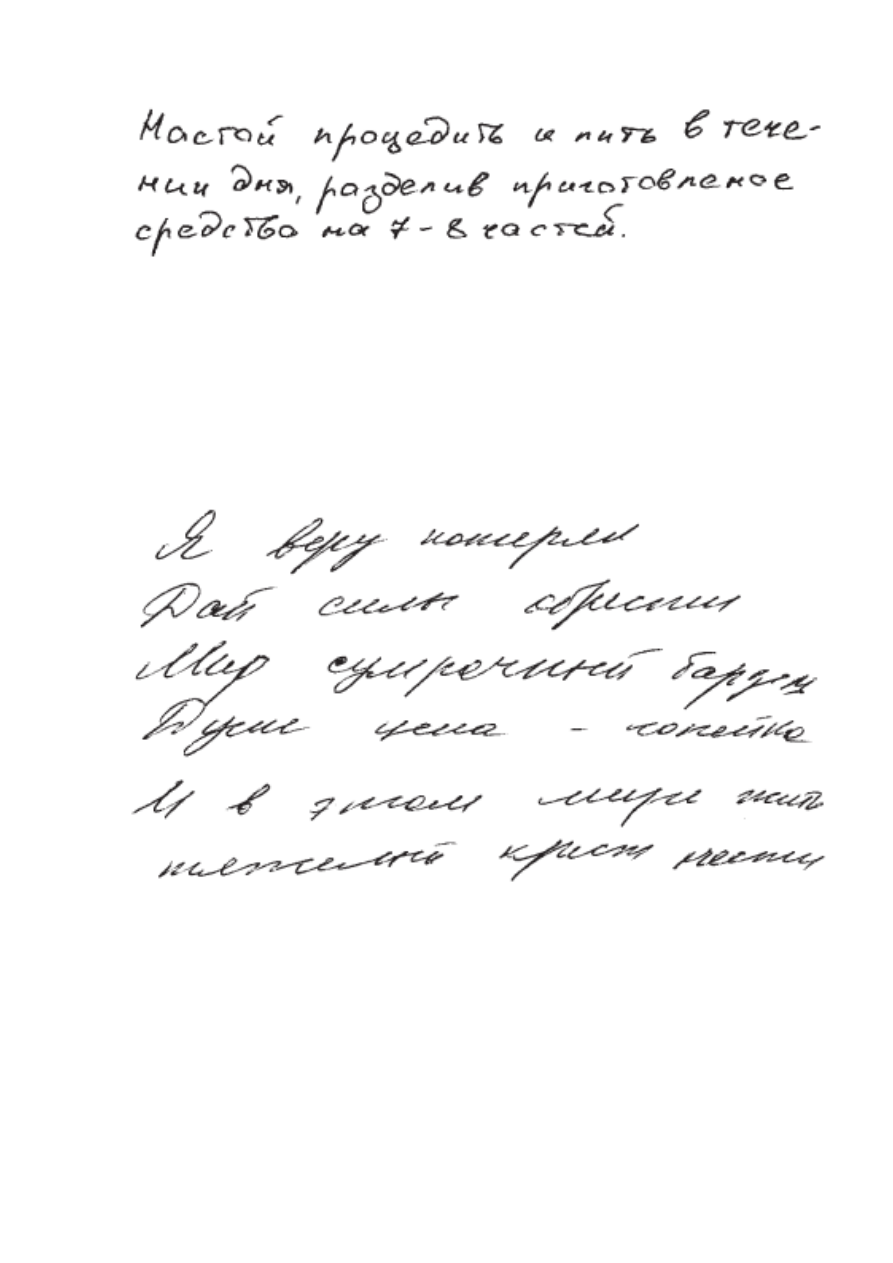 Настой процедить и пить в тече-
нии дня, разделив приготовленое
средство на 7-8 частей.
Я веру потерял
Дай силы обрести
Мир сумрачный бардель
Душе цена - копейка
И в этом мире жить
тяжелый крест нести